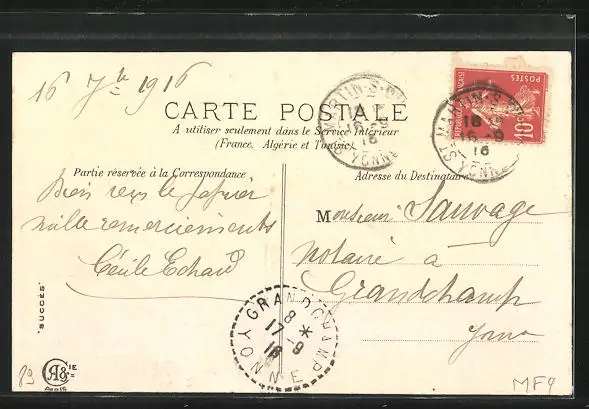 16 7bre 1916
CARTE POSTALE
A utiliser seulement dans le Service Intérieur
(France, Algérie et Tunisie)
Partie réservée à la Correspondance
Adresse du Destinataire
Bien reçu le
mille remerciements
Cécile Echard
Monsieur Sauvage
notaire à
Grandchamp
Yonne
ST MARTIN-S-
16-9
16
YONNE
ST MARTIN-S-
16
16-9
16
YONNE
RÉPUBLIQUE FRANÇAISE
POSTES
10c
GRANDCHAMP
8
17-9
16
YONNE
"SUCCÈS"
PARIS
89
MF9